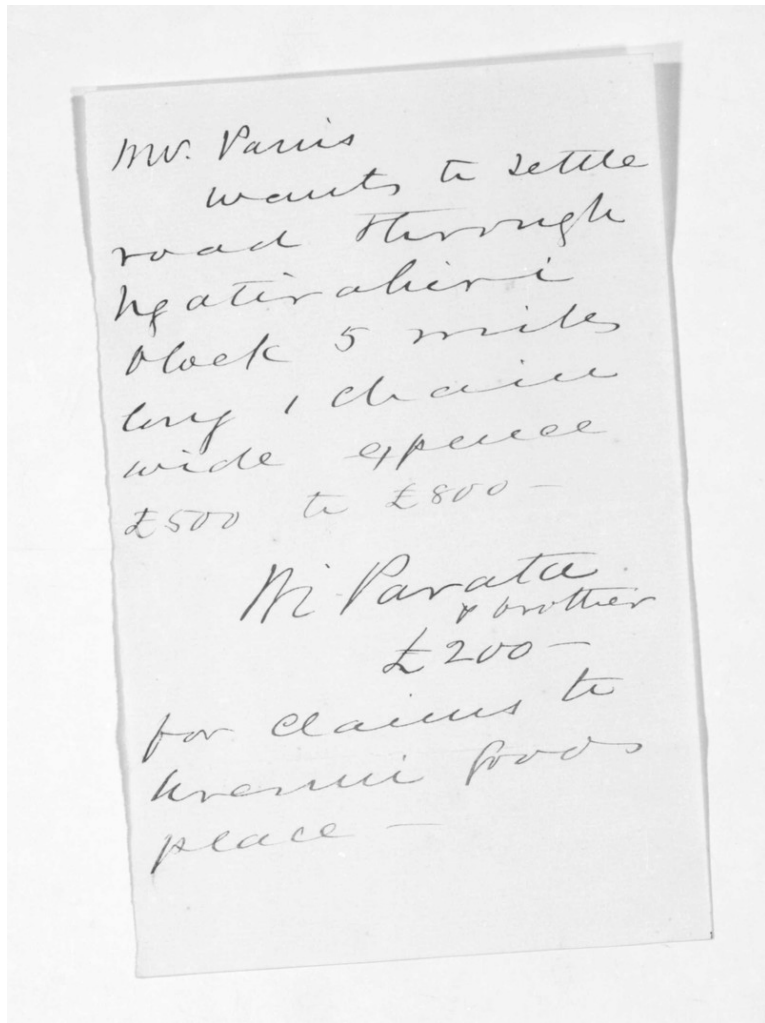 Mr. Parris
wants to settle
road through
Ngatirahiri
block 5 miles
long 1 chain
wide expence
£500 to £800 –
Wi Parata
& brother
£200 –
for claims to
goods
place –